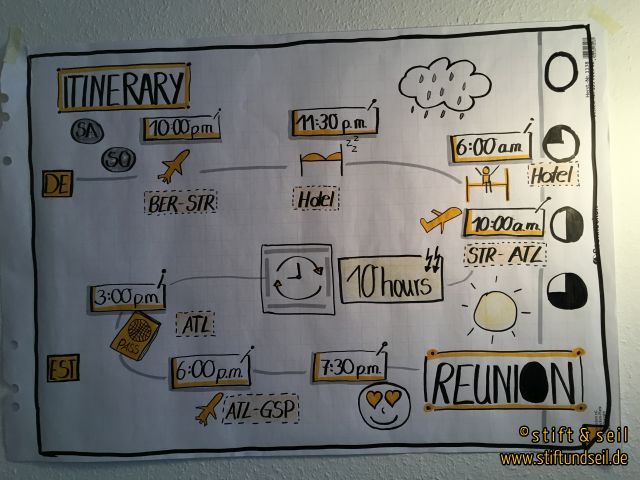 ITINERARY
SA
SO
10:00 p.m.
11:30 p.m.
6:00 a.m.
DE
zzz
BER-STR
Hotel
Hotel
10:00 a.m.
STR-ATL
10 hours
3:00 p.m.
ATL
PASS
EST
6:00 p.m.
7:30 p.m.
ATL-GSP
REUNION
© stift & seil
www.stiftundseil.de